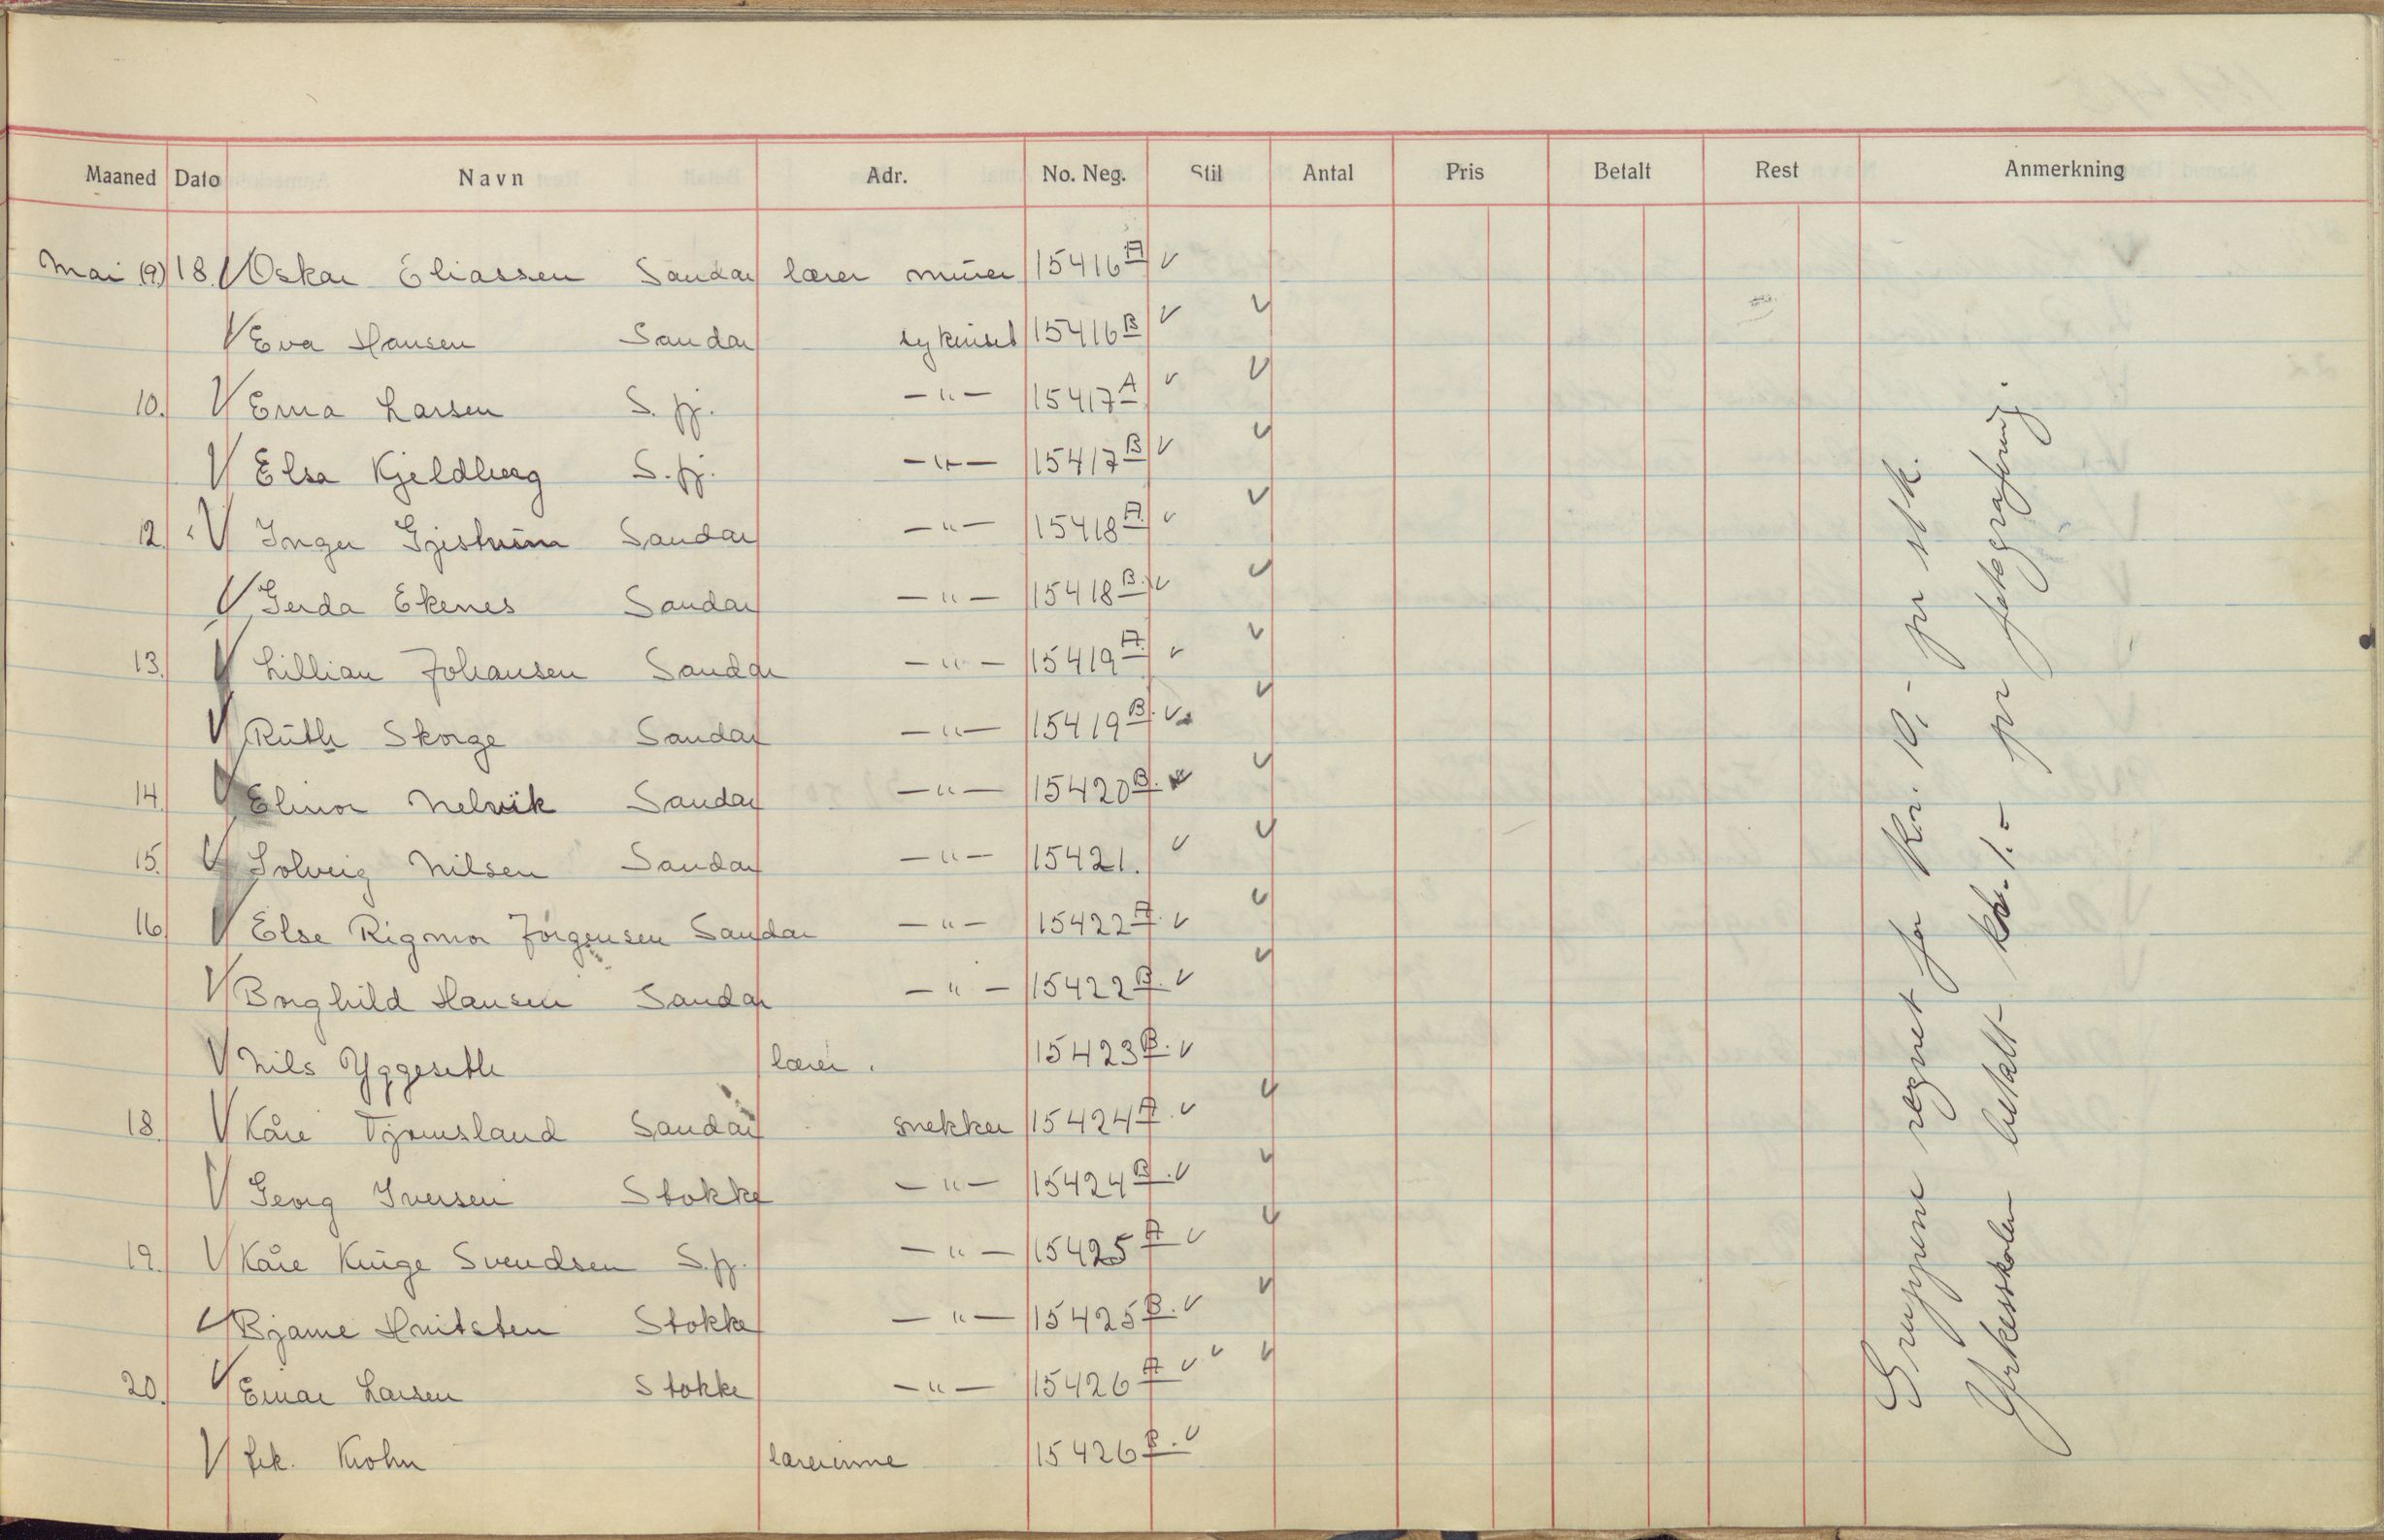 Maaned Dato Navn Adr. No. Neg. Stil Antal Pris Betalt Rest Anmerkning
Mai (9) 18. V Oskar Eliassen Sandar lærer murer 15416 A v
V Eva Hansen Sandar sykvist 15416 B v v
10. V Erna Larsen S. fj. —"— 15417 A v v
V Elsa Kjeldberg S. fj. —"— 15417 B v v
12. V Inger Gjistrum Sandar —"— 15418 A. v v
V Gerda Ekenes Sandar —"— 15418 B. v v
13. V Lillian Johansen Sandar —"— 15419 A. v v
V Ruth Skorge Sandar —"— 15419 B. v v
14. V Elinor Nelvik Sandar —"— 15420 B. v v
15. V Solveig Nilsen Sandar —"— 15421. v v
16. V Else Rigmor Jörgensen Sandar —"— 15422 A. v v
V Borghild Hansen Sandar —"— 15422 B. v v
V Nils Yggeseth lærer. 15423 B. v
18. V Kåre Tjomsland Sandar snekker 15424 A. v v
V Georg Iversen Stokke —"— 15424 B. v v
19. V Kåre Kruge Svendsen S. fj. —"— 15425 A v v
V Bjarne Hvitsten Stokke —"— 15425 B. v v
20. V Einar Larsen Stokke —"— 15426 A v v v
V frk. Krohn lærerinne 15426 B. v
Gruppene regnet for Kr. 10,- pr stk.
Yrkesskolen betalt kr. 1.- pr fotografering.